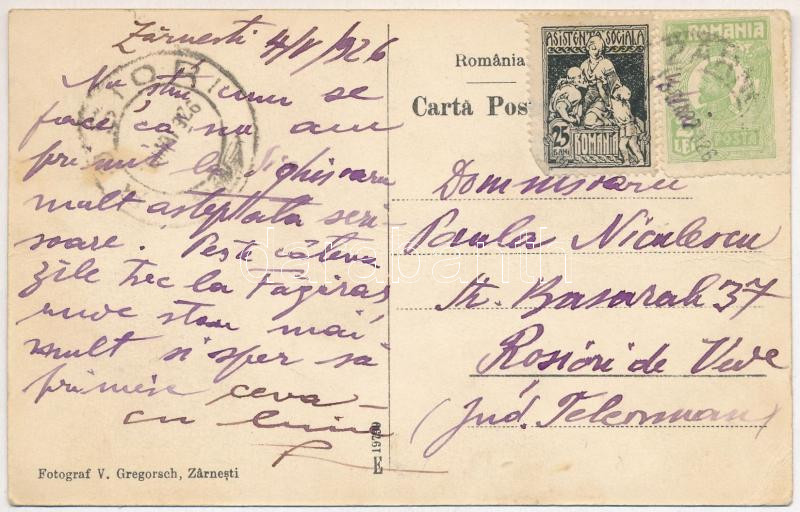 Zărnesti 4/V/926
Nu stiu cum se
face, că nu am
primit la Sighisoara
mult asteptata scri-
soare. Peste câteva
zile trec la Făgăras
unde stau mai
mult si sper să
primesc ceva
cu
Fotograf V. Gregorsch, Zârneşti
E 19799
România
Carta Pos
ASISTENȚA SOCIALA
25
BANI
ROMANIA
ROMANIA
LEI
POSTA
Domnisoarei
Paula Niculescu
Str. Basarab 37
Rosiori de Vede
(Jud. Teleorman)
darabanth